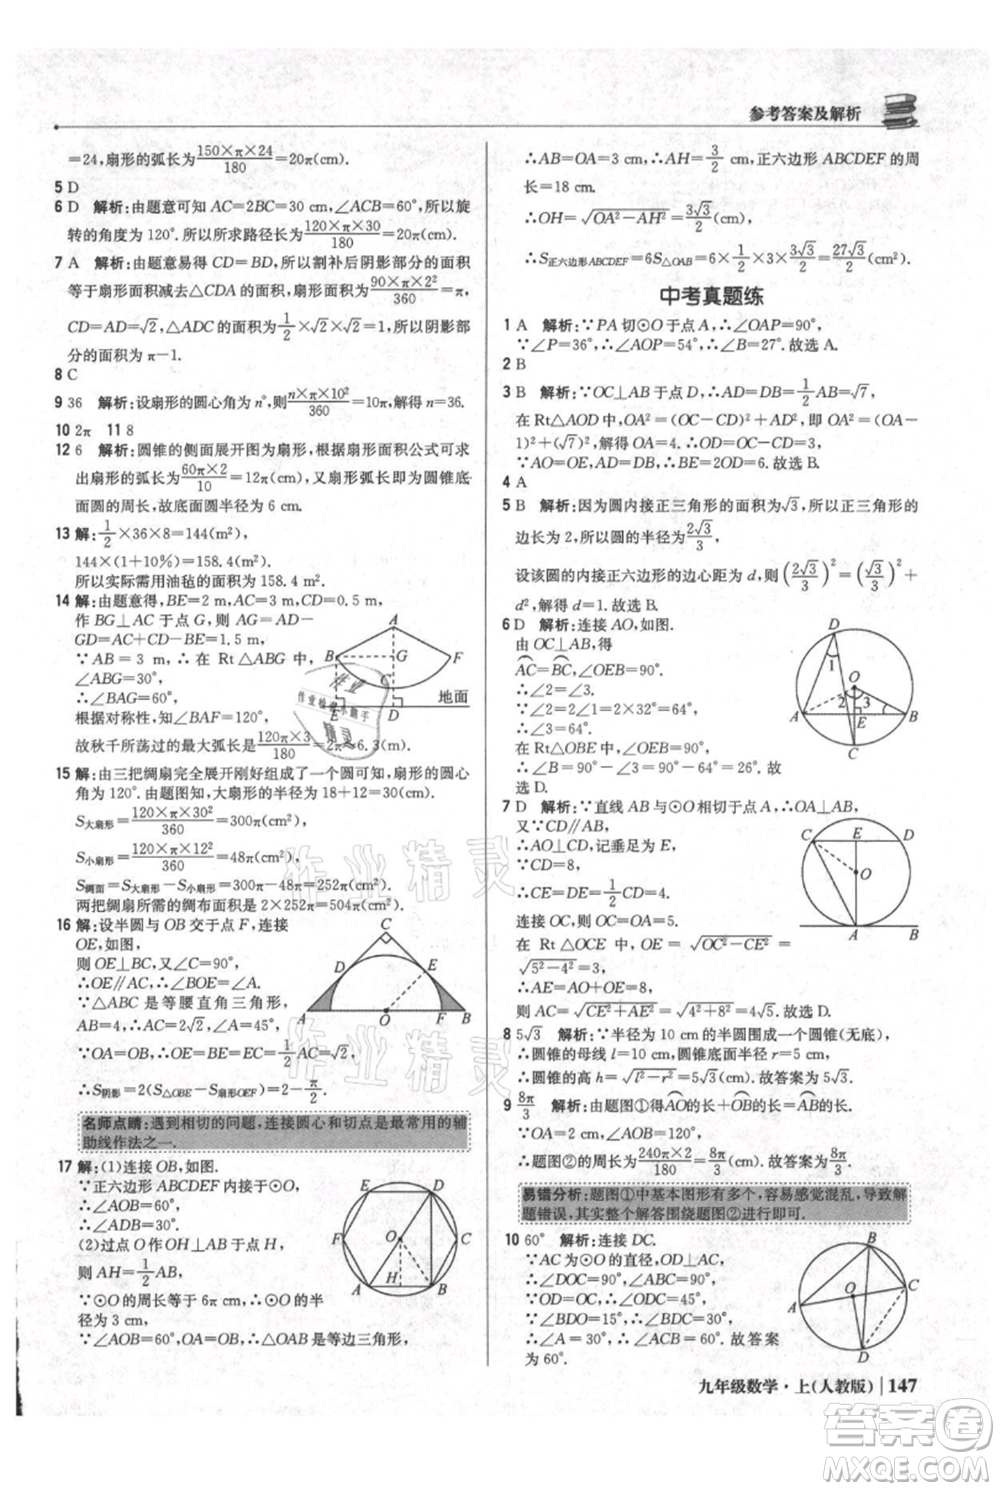 参考答案及解析
=24,扇形的弧长为150×π×24/180=20π(cm).
5 D
6 D 解析:由题意可知 AC=2BC=30 cm,∠ACB=60°,所以旋
转的角度为 120°.所以所求路径长为120×π×30/180=20π(cm).
7 A 解析:由题意易得 CD=BD,所以割补后阴影部分的面积
等于扇形面积减去△CDA 的面积.扇形面积为90×π×2/360=π/2,
CD=AD=√2,△ADC 的面积为1/2×√2×√2=1,所以阴影
8 C
9 36 解析:设扇形的圆心角为 n°,则n×π×10²/360=10π,解得 n=36.
10 2π 11 8
12 6 解析:圆锥的侧面展开图为扇形,根据扇形面积公式可求
出扇形的弧长为60π×2/10=12π(cm),扇形的弧长就是圆锥底
面圆的周长,故底面圆半径为 6 cm.
13 解:1/2×36×8=144(m²)
144×(1+10%)=158.4(m²).
所以实际需用油毡的面积为 158.4 m².
14 解:由题意得,BE=2 m,AC=3 m,CD=0.5 m,
作 BG⊥AC 于点 G,则 AG=AD-
GD=AC+CD-BE=1.5 m,
∵AB=3 m,∴在 Rt△ABG 中,
∠BAG=60°.
根据对称性,知∠BAF=120°.
故秋千所荡过的最大弧长为120×π×3/180=2π≈6.3(m).
A
B
G
F
C
E
D
地面
15 解:由三把绸扇完全展开刚好组成了一个圆可知,扇形的圆心
角为 120°.由题图知,大扇形的半径为 18+12=30(cm).
S大扇形=120×π×30²/360=300π(cm²),
S小扇形=120×π×12²/360=48π(cm²).
S绸面=S大扇形-S小扇形=300π-48π=252π(cm²).
两把绸扇所需的绸布面积为 2×252π=504π(cm²).
16 解:设半圆与 OB 交于点 F,连接
OE,如图.
则∠OEB=90°,又∠C=90°,
∴OE∥AC,∴∠EOB=∠A.
∵△ABC 是等腰直角三角形,
AB=4,∴∠A=∠B=45°.
C
D
E
A
O
B
名师点睛:遇到相切的问题,连接圆心和切点是最常用的辅
助线作法之一.
17 解:(1)连接 OB,如图.
∵正六边形 ABCDEF 内接于⊙O,
∴∠AOB=60°.
∴∠ADB=30°.
(2)过点 O 作 OH⊥AB 于点 H,
则 AH=1/2AB,
∵⊙O 的周长等于 6π cm,∴⊙O 的半
径为 3 cm.
∵∠AOB=60°,OA=OB,∴△OAB 是等边三角形,
E
D
F
O
C
A
H
B
∴AB=OA=3 cm,∴AH=3/2 cm,正六边形 ABCDEF 的周
长=18 cm.
∴OH=√(OA²-AH²)=3√3/2(cm).
中考真题练
1 A 解析:∵PA 切⊙O 于点 A,∴∠OAP=90°,
∵∠P=36°,∴∠AOP=54°,∴∠B=27°.故选 A.
2 B
3 B 解析:∵OC⊥AB 于点 D,∴AD=DB=1/2AB=√7,
在 Rt△ADO 中,OA²=(OC-CD)²+AD²,即 OA²=(OA-
1)²+(√7)²,解得 OA=4.∴OD=OA-CD=3.
∵AO=OE,AD=DB,∴BE=2OD=6.故选 B.
4 A
5 B 解析:因为圆内接正三角形的面积为√3,所以正三角形的
边长为 2,所以圆的半径为2√3/3,
设该圆的内接正六边形的边心距为 d,则(2√3/3)²=(√3/3)²+
d²,解得 d=1.故选 B.
6 D 解析:连接 AO,如图.
由 OC⊥AB,得
AC=BC,∠OEB=90°.
∴∠2=∠3.
∵∠2=2∠1=2×32°=64°,
∴∠3=64°.
在 Rt△OBE 中,∠OEB=90°,
∴∠B=90°-∠3=90°-64°=26°.故
选 D.
D
1
O
2 3
A
E
B
C
7 D 解析:∵直线 AB 与⊙O 相切于点 A,∴OA⊥AB,
又∵CD∥AB,
∴AO⊥CD,记垂足为 E,
∵CD=8,
∴CE=DE=1/2CD=4,
连接 OC,则 OC=OA=5.
在 Rt△OCE 中,OE=√(OC²-CE²)=
√(5²-4²)=3,
∴AE=AO+OE=8,
则 AC=√(CE²+AE²)=√(4²+8²)=4√5.故选 D.
C
E
D
O
A
B
8 5√3 解析:∵半径为 10 cm 的半圆围成一个圆锥(无底),
∴圆锥的母线 l=10 cm,底面圆半径 r=5 cm.
∴圆锥的高 h=√(l²-r²)=5√3 cm.
9 8π/3 解析:由题图①得AO的长+OB的长=AB的长,
∵OA=2,∠AOB=120°,
∴题图②的周长为240π×2/180=8π/3.故答案为8π/3.
易错分析:题图①中基本图形有多个,容易感觉混乱,导致解
题错误,其实整个解答围绕题图②进行即可.
10 60° 解析:连接 DC.
∵AC 为⊙O 的直径,OD⊥AC,
∴∠DOC=90°,∠ABC=90°,
B
C
O
A
D
九年级数学·上(人教版) | 147
作业精灵
作业精灵
答案圈
MXQE.COM